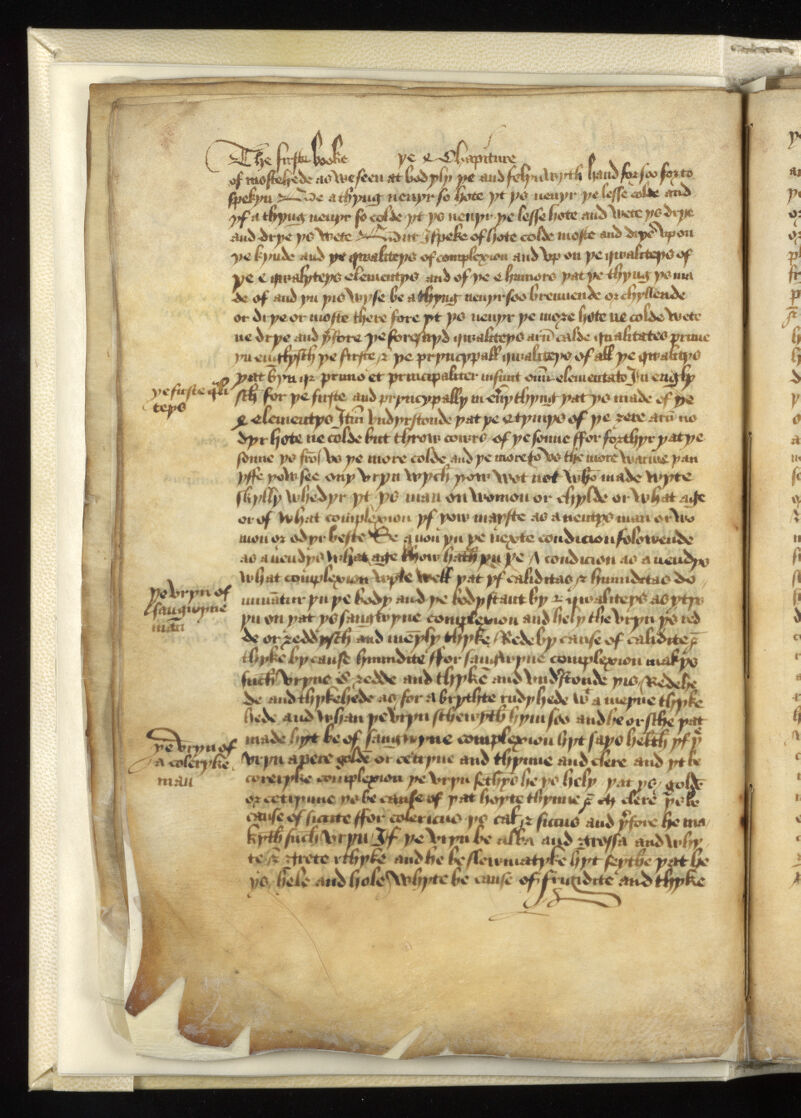 The firste booke ye 4 Chapiture
of mostehede as we seen at bodyly ye and felyn wyth hand for soo forto
spekyn Be a thyng neuyr so hote yt ys neuyr ye lesse colde and
yf a thyng neuyr so colde yt ys neuyr ye lesse hote and wete ys drye
and drye ys wete But I speke of hote colde moste and drye vpon
ye kynde and ye qwaliteys of complexion and vp on ye qwaliteys of
ye 4 qwalyteys elementys and of ye 4 humors yat ye thyng ys ma
de of and yn yis wyse be a thyng neuyr soo brennende or chyllende
or drye or moste there fore yt ys neuyr ye more hote ne colde wete
ne drye and yfore ye foreseyd qwaliteys arn calde qualitates prime
yn englysch ye firste & ye pryncypall qwaliteys of all ye qwalitys
yat byn qz primo et principaliter insunt omni elementato In engly
sch for ye firste and pryncypally in euery thyng yat ys made of ye
4 elementys Itm vndyrstonde yat ye 4 tymys of ye zere arn no
dyr hote ne colde but throw cowrs of ye sonne ffor forthyr yat ye
sonne ys fro vs ye more colde and ye more to vs the more warme yan
yffe yow see ony vryn wych yow wot not who made wyte
skylly whedyr yt ys man or womon or chylde or what age
or of what complexion yf yow mayste as aneutys man or wo
mon or odyr beste Se quon yn ye nexte condicion folowende
as a nendys what age how hath yn ye condicion as a nendys
what complexion wyte well yat yf caliditas & humiditas do
minātur yn ye body and ye body stant by 2 qwaliteys as ytys
yn on yat ys sangwyne complexion and hely the vryn ys red
de or reddysch and menyly thyke Rede by cause of calidite &
thyke by cause humidite ffor sangwyne complexion makys
such vryne redde and thyke and vndstonde yis Redehe
de and thykehede as for a brythte rudyhede wt a meyne thyke
hede and whan ye vryn schewyth hym soo and he or sche yat
made hyt be of sangwyne complexion hyt says helth yf yr
vryn apere golde or cetryne and thynne and clere and yt be
coleryke complexion ye vryn sethys he ys hely yat ys golde
or cetrynne ys be cause of yat hoyte thynne & clere yr be
cause of sicite ffor colericus ys cal & siccus and yfore he ma
kyth such vryn If ye vryn be alba and grossa and why
te & grete thyke and he be flewmatyke hyt seythe yat he
ys hele and hole Whyte be cause of frigidite and thyke
ye firste qli
teys
ye vryn of
sangwyne
man
ye vryn of
a coleryke
man